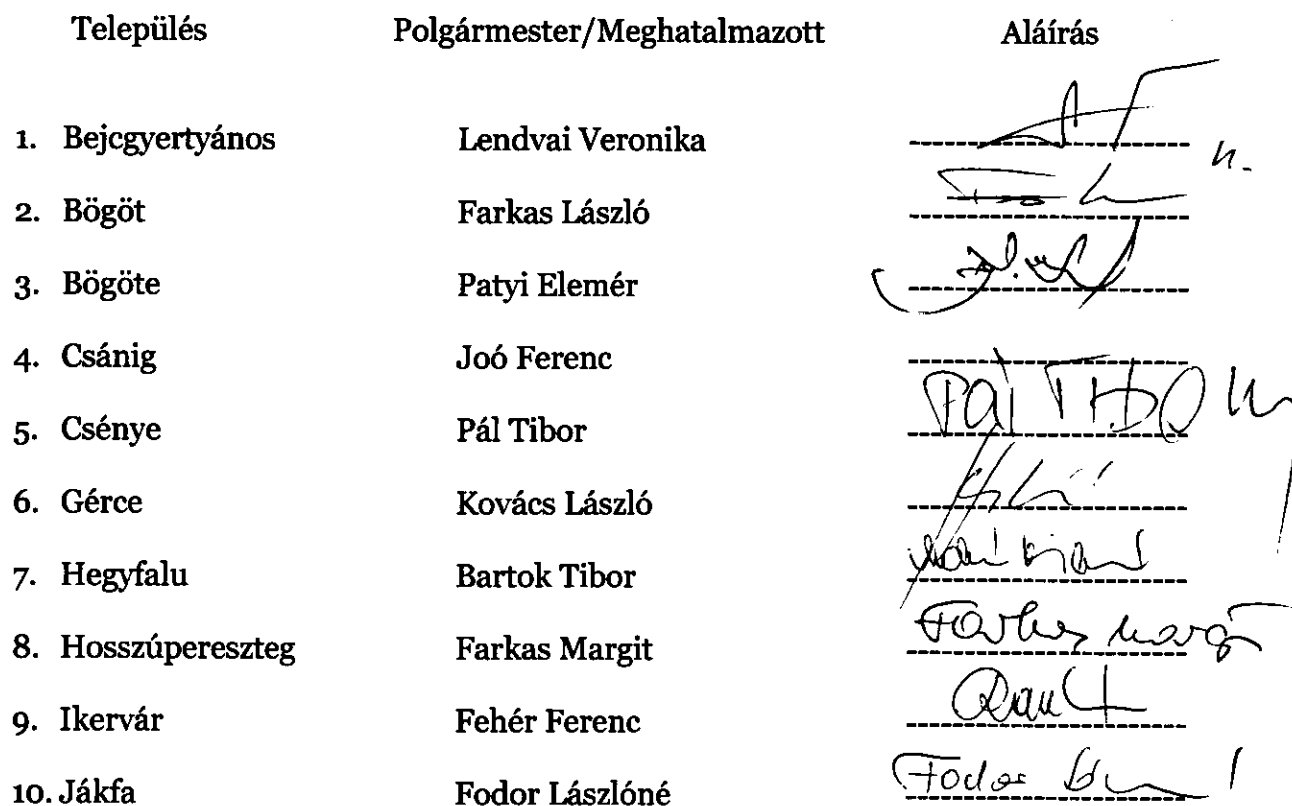 Település Polgármester/Meghatalmazott Aláírás
1. Bejcgyertyános Lendvai Veronika
2. Bögöt Farkas László
3. Bögöte Patyi Elemér
4. Csánig Joó Ferenc
5. Csénye Pál Tibor Pál Tibor
6. Gérce Kovács László
7. Hegyfalu Bartok Tibor
8. Hosszúpereszteg Farkas Margit Farkas Margit
9. Ikervár Fehér Ferenc
10. Jákfa Fodor Lászlóné Fodor